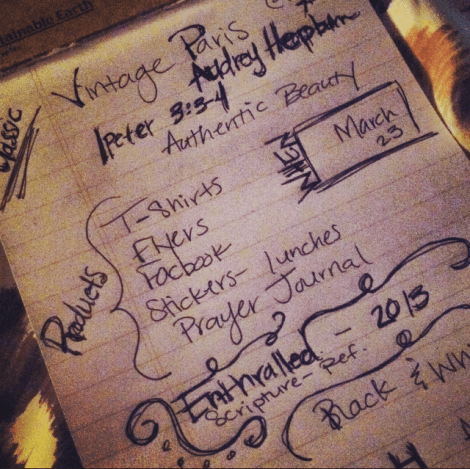 Sustainable Earth
Classic
Vintage Paris
Audrey Hepburn
1 Peter 3:3-4
Authentic Beauty
WHEN
March
23
Products
T-Shirts
Flyers
Facbook
Stickers- Lunches
Prayer Journal
Enthralled - 2013
Scripture- Ref.
Black & Whi